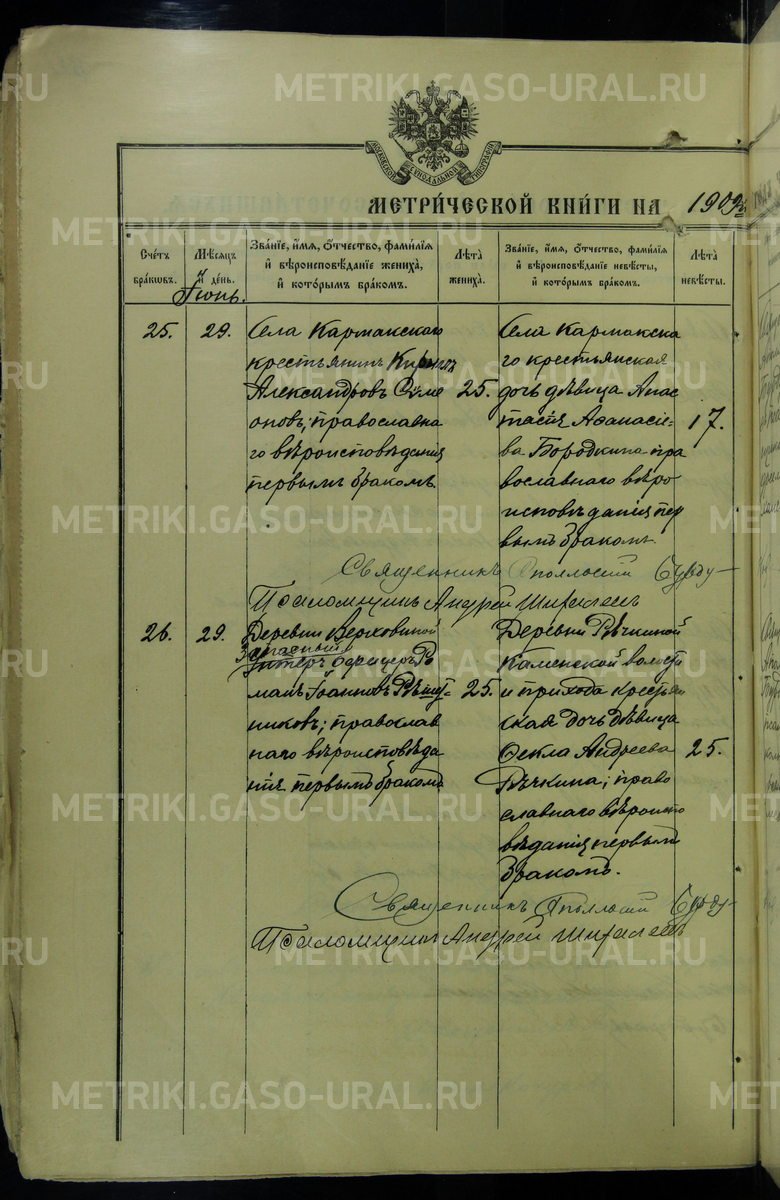 METRIKI.GASO-URAL.RU
МОСКОВСКОЙ СѴНОДАЛЬНОЙ ТИПОГРАФІИ
МЕТРИ́ЧЕСКОЙ КНИ́ГИ НА 1909
Сче́тъ бра́кωвъ.
Мѣ́сяцъ и҆ де́нь.
Іюнь.
Зва́нїе, и҆́мя, ѻ҆́тчество, фами́лїѧ
и҆ вѣроисповѣ́данїе жениха̀,
и҆ кото́рымъ бра́комъ.
Лѣ́та жениха̀.
Зва́нїе, и҆́мя, ѻ҆́тчество, фами́лїѧ
и҆ вѣроисповѣ́данїе невѣ́сты,
и҆ кото́рымъ бра́комъ.
Лѣ́та невѣ́сты.
25.
29.
Села Кармакскаго
крестьянинъ
Александровъ Симе
оновъ; православна
го вѣроисповѣданія
первымъ бракомъ.
25.
Села Кармакска
го крестьянская
дочь дѣвица Анас
тасія Аѳанасіе=
ва Бородкина пра
вославнаго вѣро
исповѣданія пер
вымъ бракомъ.
17.
Священникъ Аполлосій
Псаломщикъ Андрей
26.
29.
Деревни Верховиной
Запасный
Унтеръ офицеръ Ро
манъ Іоанновъ Рѣшет=
никовъ; православ
наго вѣроисповѣда
нія первымъ бракомъ
25.
Деревни Рѣчкиной
Каменской волости
и прихода крестьян
ская дочь дѣвица
Ѳекла Андреева
Рѣчкина; право
славнаго вѣроиспо
вѣданія первымъ
бракомъ.
25.
Священникъ Аполлосій
Псаломщикъ Андрей